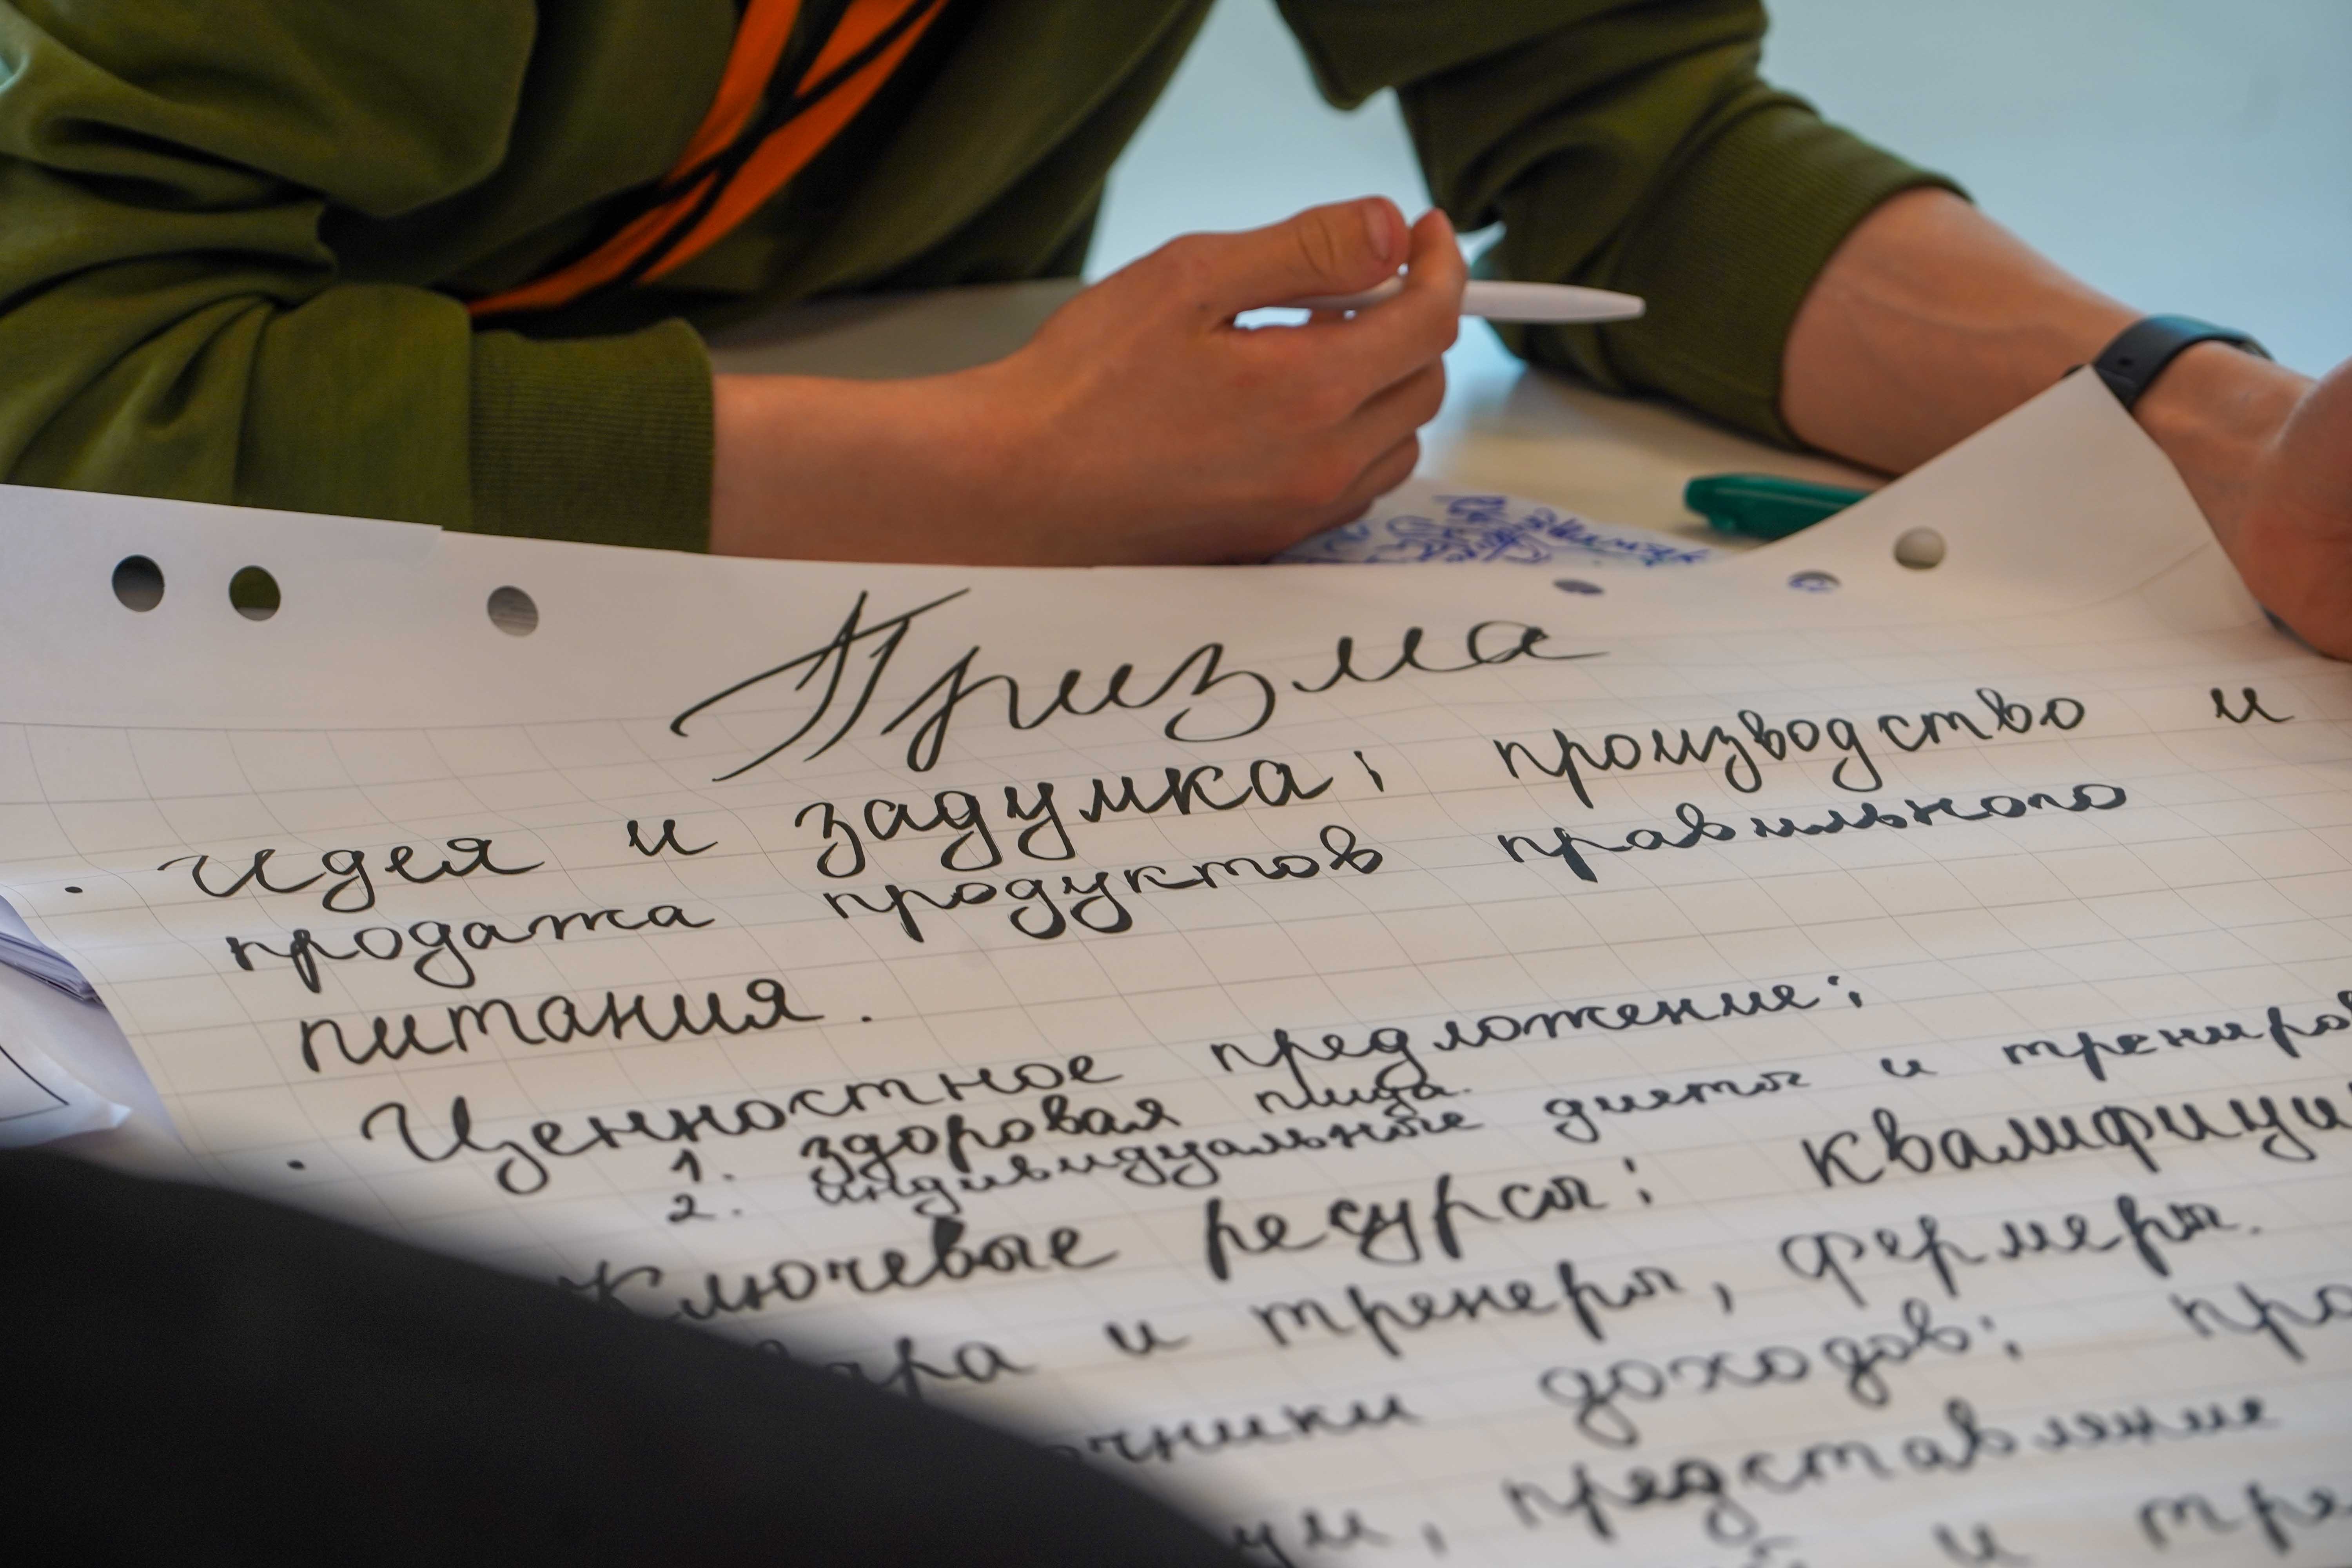 Призма
· Идея и задумка: производство и
продажа продуктов правильного
питания.
· Ценностное предложение:
1. здоровая пища.
2. индивидуальные диеты и трениро
Ключевые ресурсы: квалифици
и тренеры, фермеры.
доходов: про
, представление
и тре